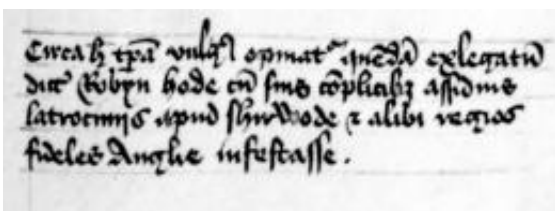 Circa h̄ tp̄a vulg᷒ opinat᷒ quēdā exlegatū
dict̄ Robyn hode cū suis cōplicibꝫ assiduis
latrocinijs apud shirwode ⁊ alibi regios
fideles Anglie infestasse.